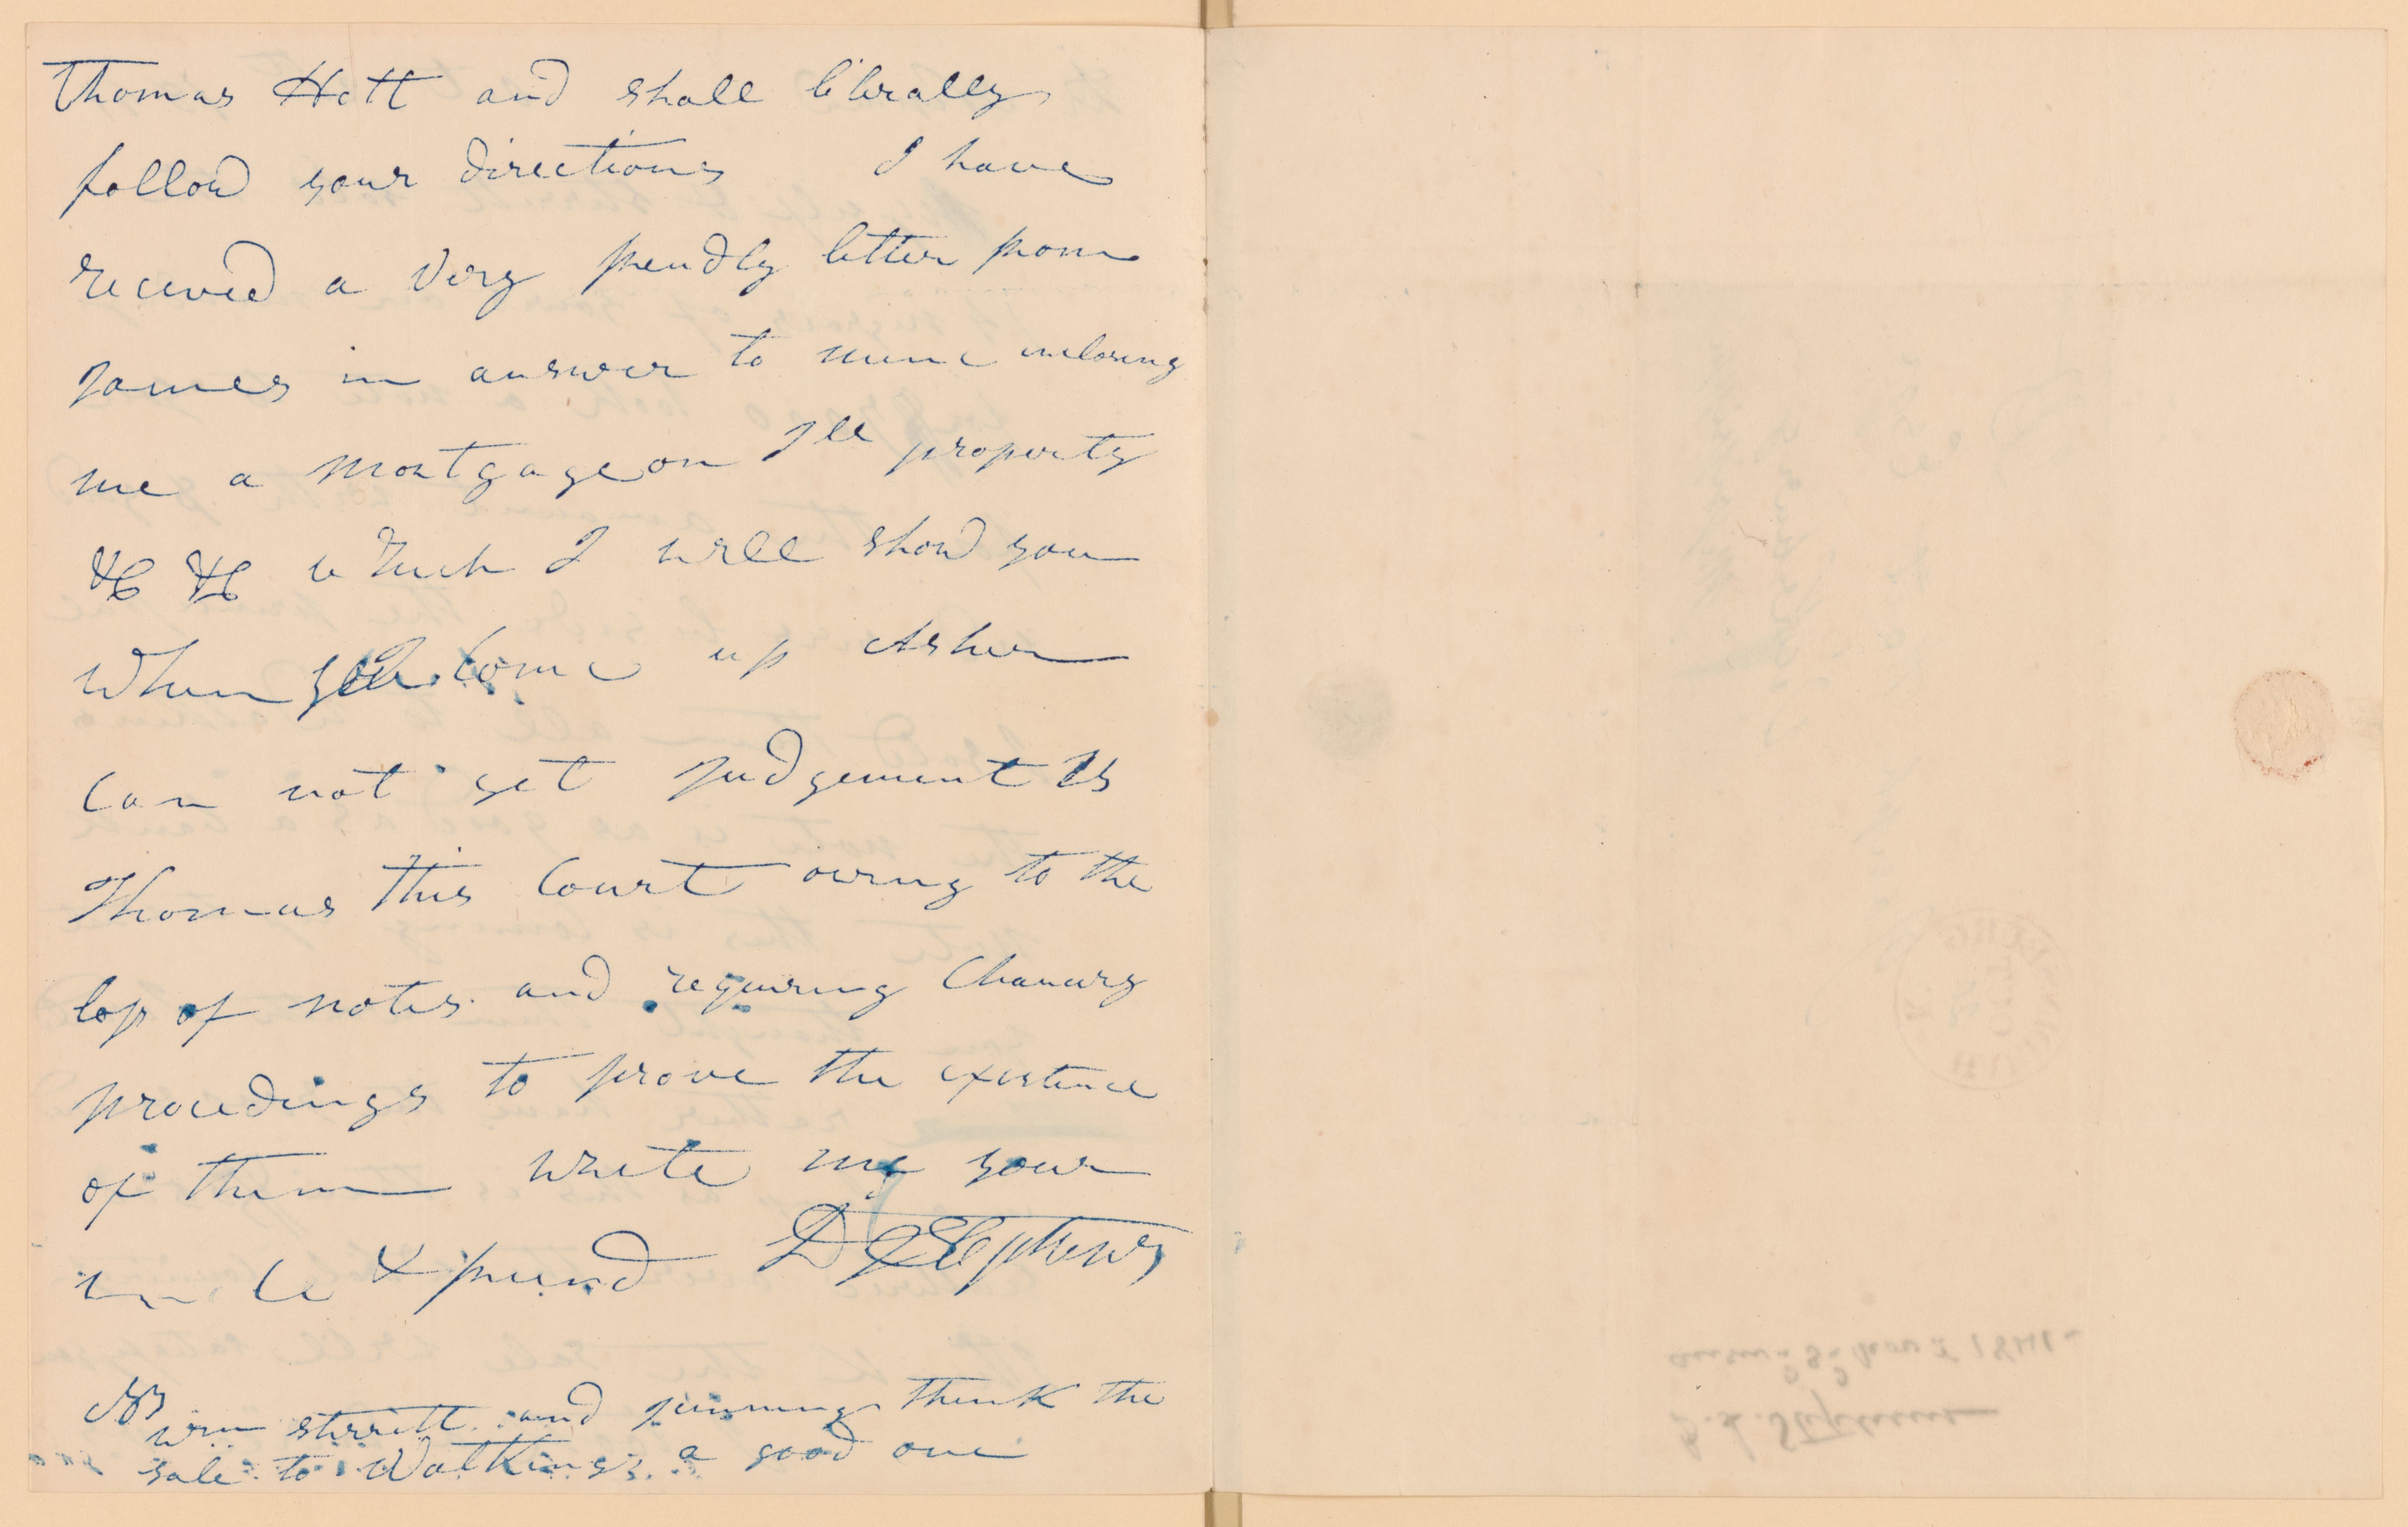 Thomas Hott and shall literally
follow your directions I have
received a Very freindly letter from
James in answer to mine inclosing
me a mortgage on Ill property
&C &C which I will show you
When you Come up Asher
Can not get judgement Vs
Thomas this Court owing to the
loss of notes and requiring Chancery
proceedings to prove the existence
of them write me your
uncle & freind D L Stephens
NB
wm sterrett and think the
sale to Watkins a good one